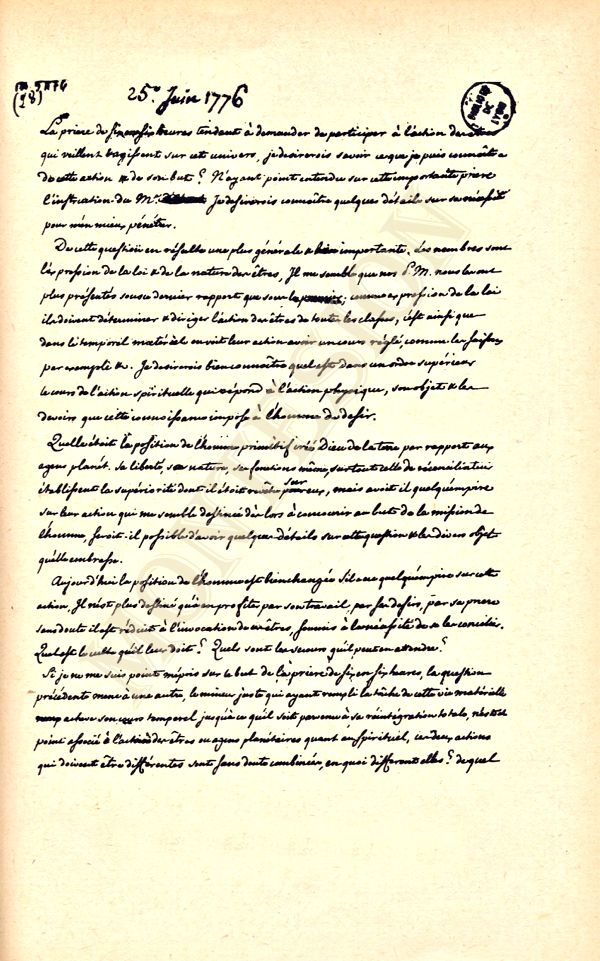 (28)
25e Juin 1776
La priere de six en six heures tendant à demander de participer à l'action des
qui veillent & agissent sur cet univers, je desirerois savoir ce que je puis connoître
de cette action & de son but? N'ayant point entendu sur cette importante priere
l'instruction du Me. Je desirerois connoître quelques détails sur sa nécessité
pour m'en mieux pénétrer.
De cette question en résulte une plus générale & bien importante. Les nombres sont
l'expression de la loi & de la nature des êtres, Il me semble que nos P. M. nous les ont
plus présentés sous ce dernier rapport que sur le premier; comme expression de la loi
ils doivent déterminer & diriger l'action des êtres de toutes les classes, c'est ainsi que
dans le temporel matériel on voit leur action avoir un cours réglé, comme les saisons
par exemple &c. Je desirerois bien connoître quel est dans un ordre supérieur
le cours de l'action spirituelle qui répond à l'action physique, son objet & les
devoirs que cette connoissance impose à l'homme de desir.
Quelle étoit la position de l'homme primitif créé Dieu de la terre par rapport aux
agens planét. Sa liberté, sa nature, ses fonctions même, surtout celle de réconciliateur
établissent la supériorité dont il étoit revêtu sur eux, mais avoit il quelqu'empire
sur leur action qui me semble destinée dès lors à concourir au but de la mission de
l'homme, seroit-il possible d'avoir quelques détails sur cette question & les divers objets
qu'elle embrasse.
Aujourd'hui la position de l'homme est bien changée s'il a eu quelqu'empire sur cette
action, Il n'est plus destiné qu'à en profiter par son travail, par ses desirs, par sa priere
sans doute il est réduit à l'invocation de ces êtres, soumis à la nécessité de se les concilier.
Quel est le culte qu'il leur doit? Quels sont les secours qu'il peut en attendre?
Si je ne me suis point mépris sur le but de la priere de six en six heures, la question
précédente mene à une autre, le mineur juste qui ayant rempli la tâche de cette vie matérielle
acheve son cours temporel jusqu'à ce qu'il soit parvenu à sa réintégration totale, n'est-il
point associé à l'action des êtres ou agens planétaires quant au spirituel, ces deux actions
qui doivent être différentes sont sans doute combinées, en quoi different elles? de quel